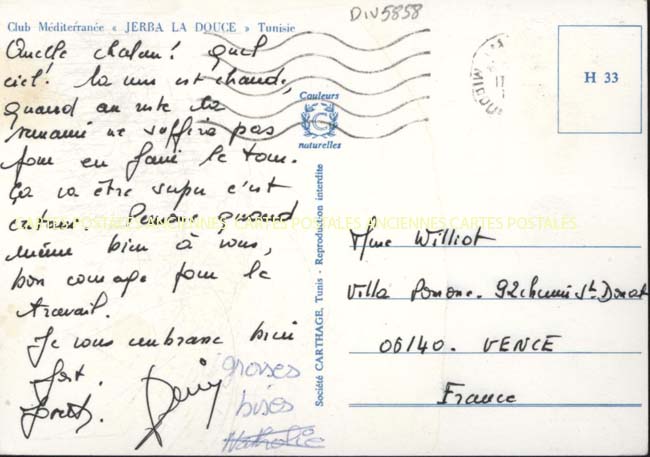 Club Méditerranée « JERBA LA DOUCE » Tunisie
DIV5858
Quelle chaleur! Quel
ciel! La mer est chaude,
quand au reste la
semaine ne suffira pas
pour en faire le tour.
Ça va être super c'est
certain. Pensons quand
même bien à vous,
bon courage pour le
travail.
Je vous embrasse bien
fort.
grosses
bises
Nathalie
Couleurs
C
naturelles
Société CARTHAGE, Tunis - Reproduction interdite
H 33
Mme Williot
Villa Pomone. 92 chemin St Donat
06140. VENCE
France
CARTES POSTALES ANCIENNES CARTES POSTALES ANCIENNES CARTES POSTALES